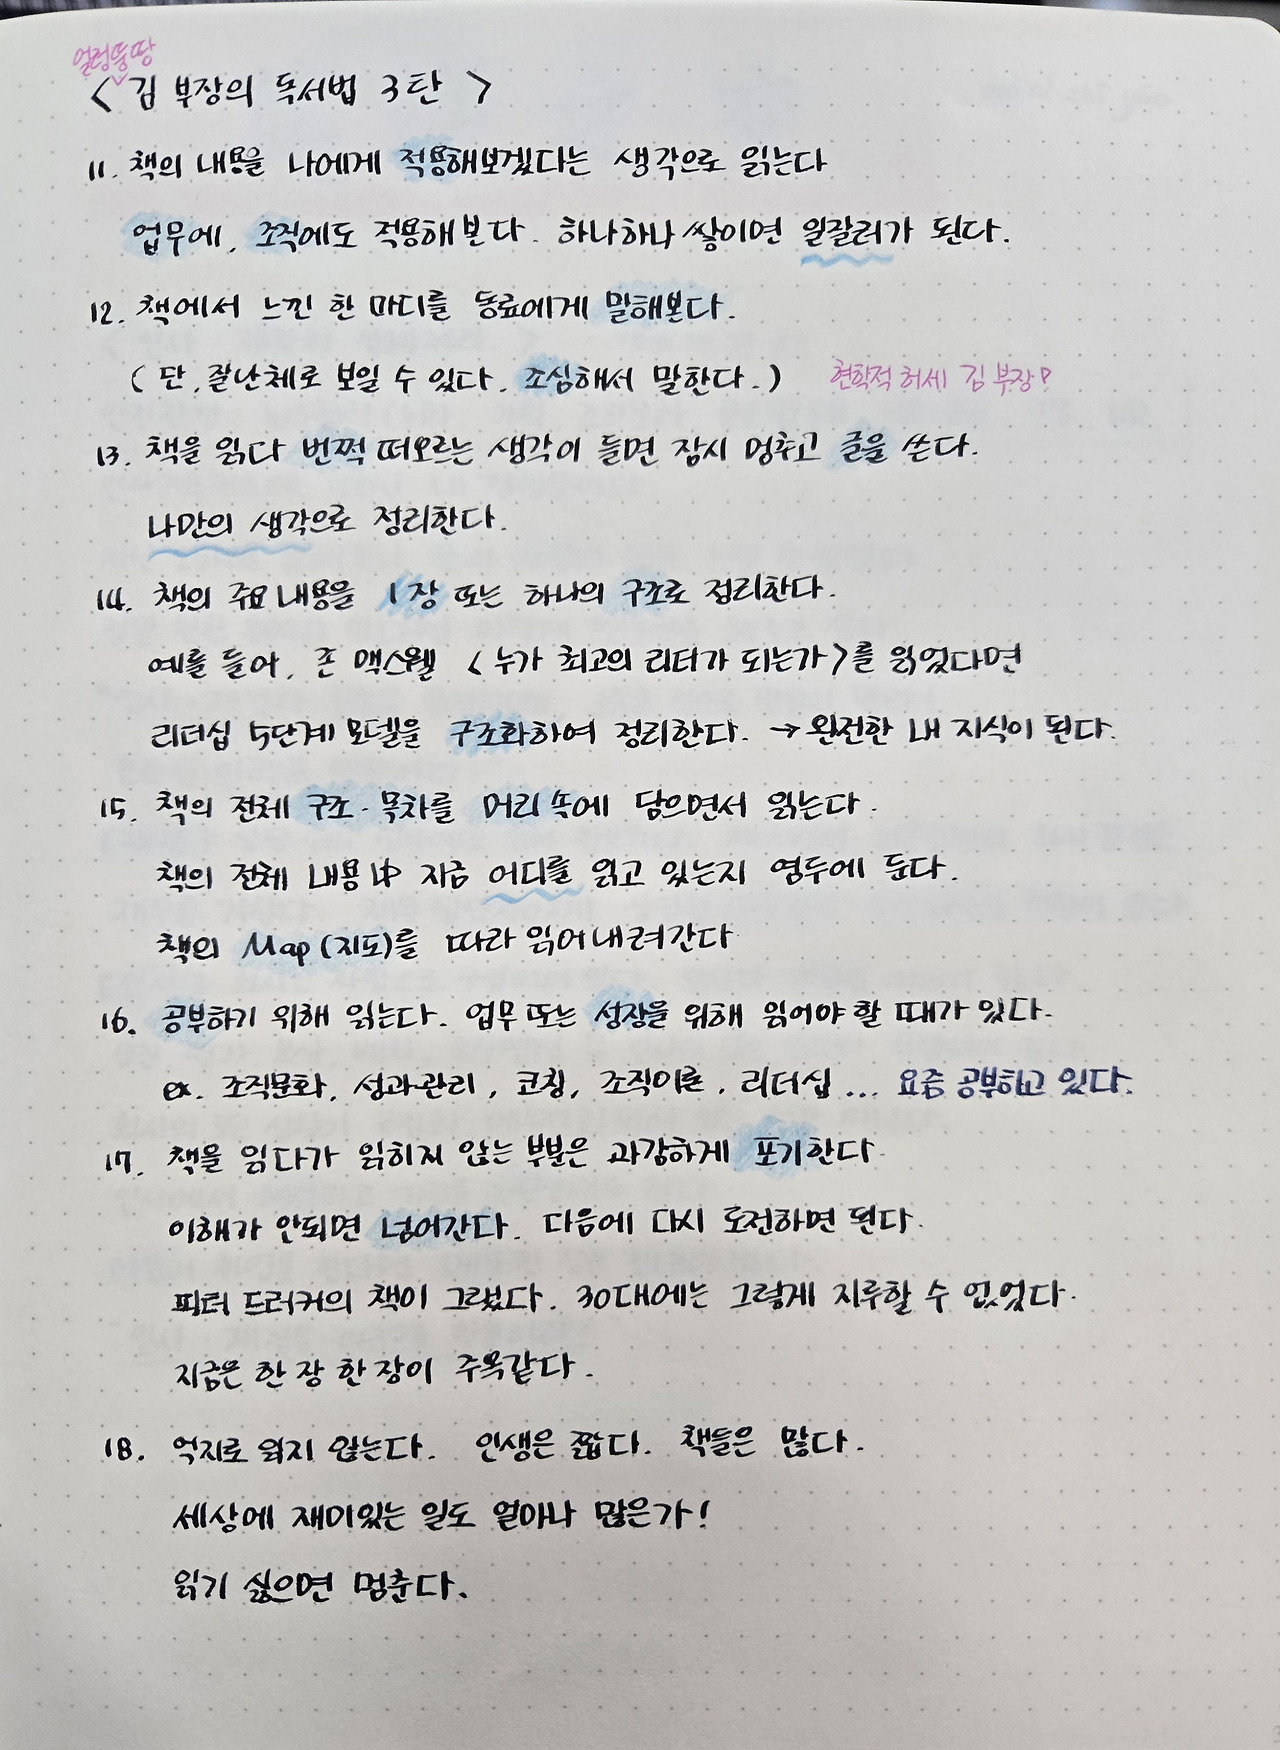 얼렁뚱땅
< 김 부장의 독서법 3탄 >
11. 책의 내용을 나에게 적용해보겠다는 생각으로 읽는다
업무에, 조직에도 적용해본다. 하나하나 쌓이면 일잘러가 된다.
12. 책에서 느낀 한 마디를 동료에게 말해본다.
( 단, 잘난체로 보일 수 있다. 조심해서 말한다. ) 현학적 허세 김 부장?
13. 책을 읽다 번쩍 떠오르는 생각이 들면 잠시 멈추고 글을 쓴다.
나만의 생각으로 정리한다.
14. 책의 주요 내용을 1장 또는 하나의 구조로 정리한다.
예를 들어, 존 맥스웰 <누가 최고의 리더가 되는가>를 읽었다면
리더십 5단계 모델을 구조화하여 정리한다. → 완전한 내 지식이 된다.
15. 책의 전체 구조·목차를 머리 속에 담으면서 읽는다.
책의 전체 내용 中 지금 어디를 읽고 있는지 염두에 둔다.
책의 Map (지도)를 따라 읽어 내려간다
16. 공부하기 위해 읽는다. 업무 또는 성장을 위해 읽어야 할 때가 있다.
ex. 조직문화, 성과관리, 코칭, 조직이론, 리더십 ... 요즘 공부하고 있다.
17. 책을 읽다가 읽히지 않는 부분은 과감하게 포기한다.
이해가 안되면 넘어간다. 다음에 다시 도전하면 된다.
피터 드러커의 책이 그랬다. 30대에는 그렇게 지루할 수 없었다.
지금은 한 장 한 장이 주옥같다.
18. 억지로 읽지 않는다. 인생은 짧다. 책들은 많다.
세상에 재미있는 일도 얼마나 많은가!
읽기 싫으면 멈춘다.